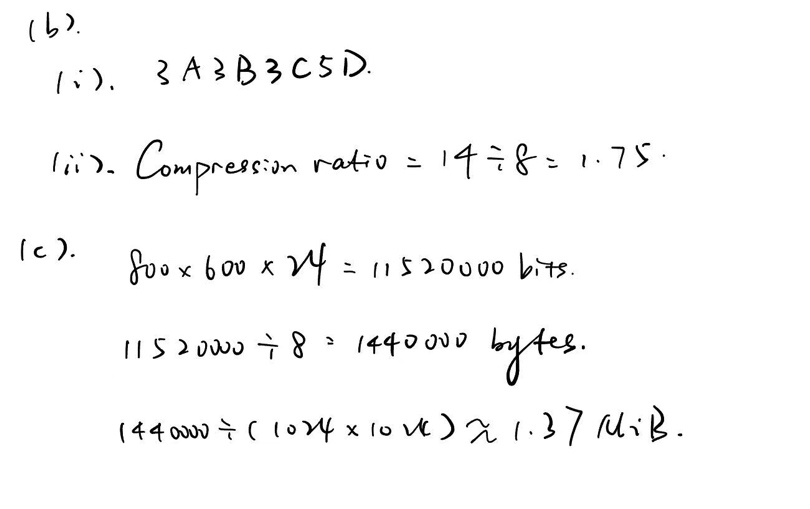 (b).
(i). 3A3B3C5D.
(ii). Compression ratio = 14÷8 = 1.75.
(c). 800 × 600 × 24 = 11520000 bits.
11520000 ÷ 8 = 1440000 bytes.
1440000 ÷ (1024 × 1024) ≈ 1.37 MiB.